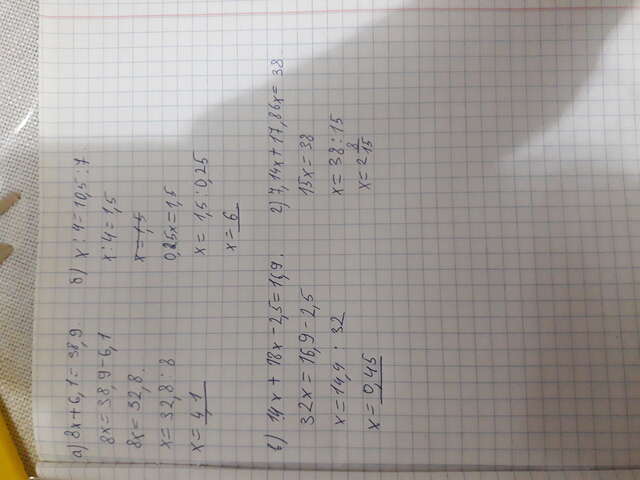 а) 8x+6,1=38,9
8x=38,9-6,1
8x=32,8.
x=32,8:8
x=4,1
б) x:4=10,5:7
x:4=1,5
x=1,5
0,25x=1,5
x=1,5:0,25
x=6
в) 14x+18x-2,5=16,9.
32x=16,9-2,5
x=14,4:32
x=0,45
г) 7,14x+17,86x=38
15x=38
x=38:15
x=2 8/15